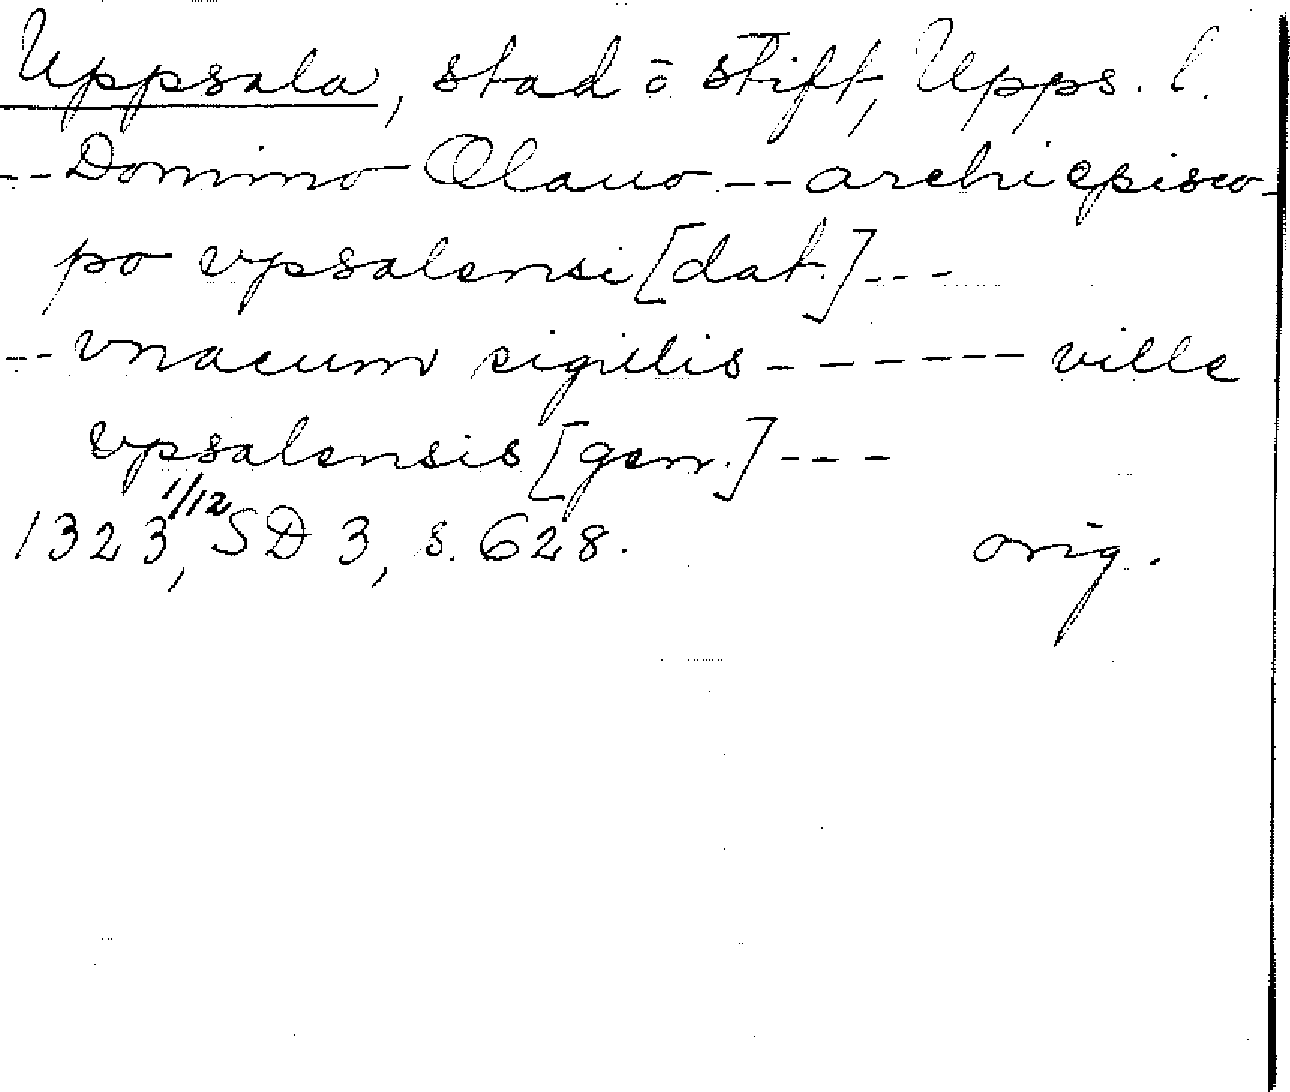 Uppsala, stad o stift, Upps. l.
-- Domino Olauo -- archiepisco-
po vpsalensi [dat.] ---
-- vnacum sigillis ------ ville
vpsalensis [gen.] ---
1323 1/12, SD 3, s. 628. orig.